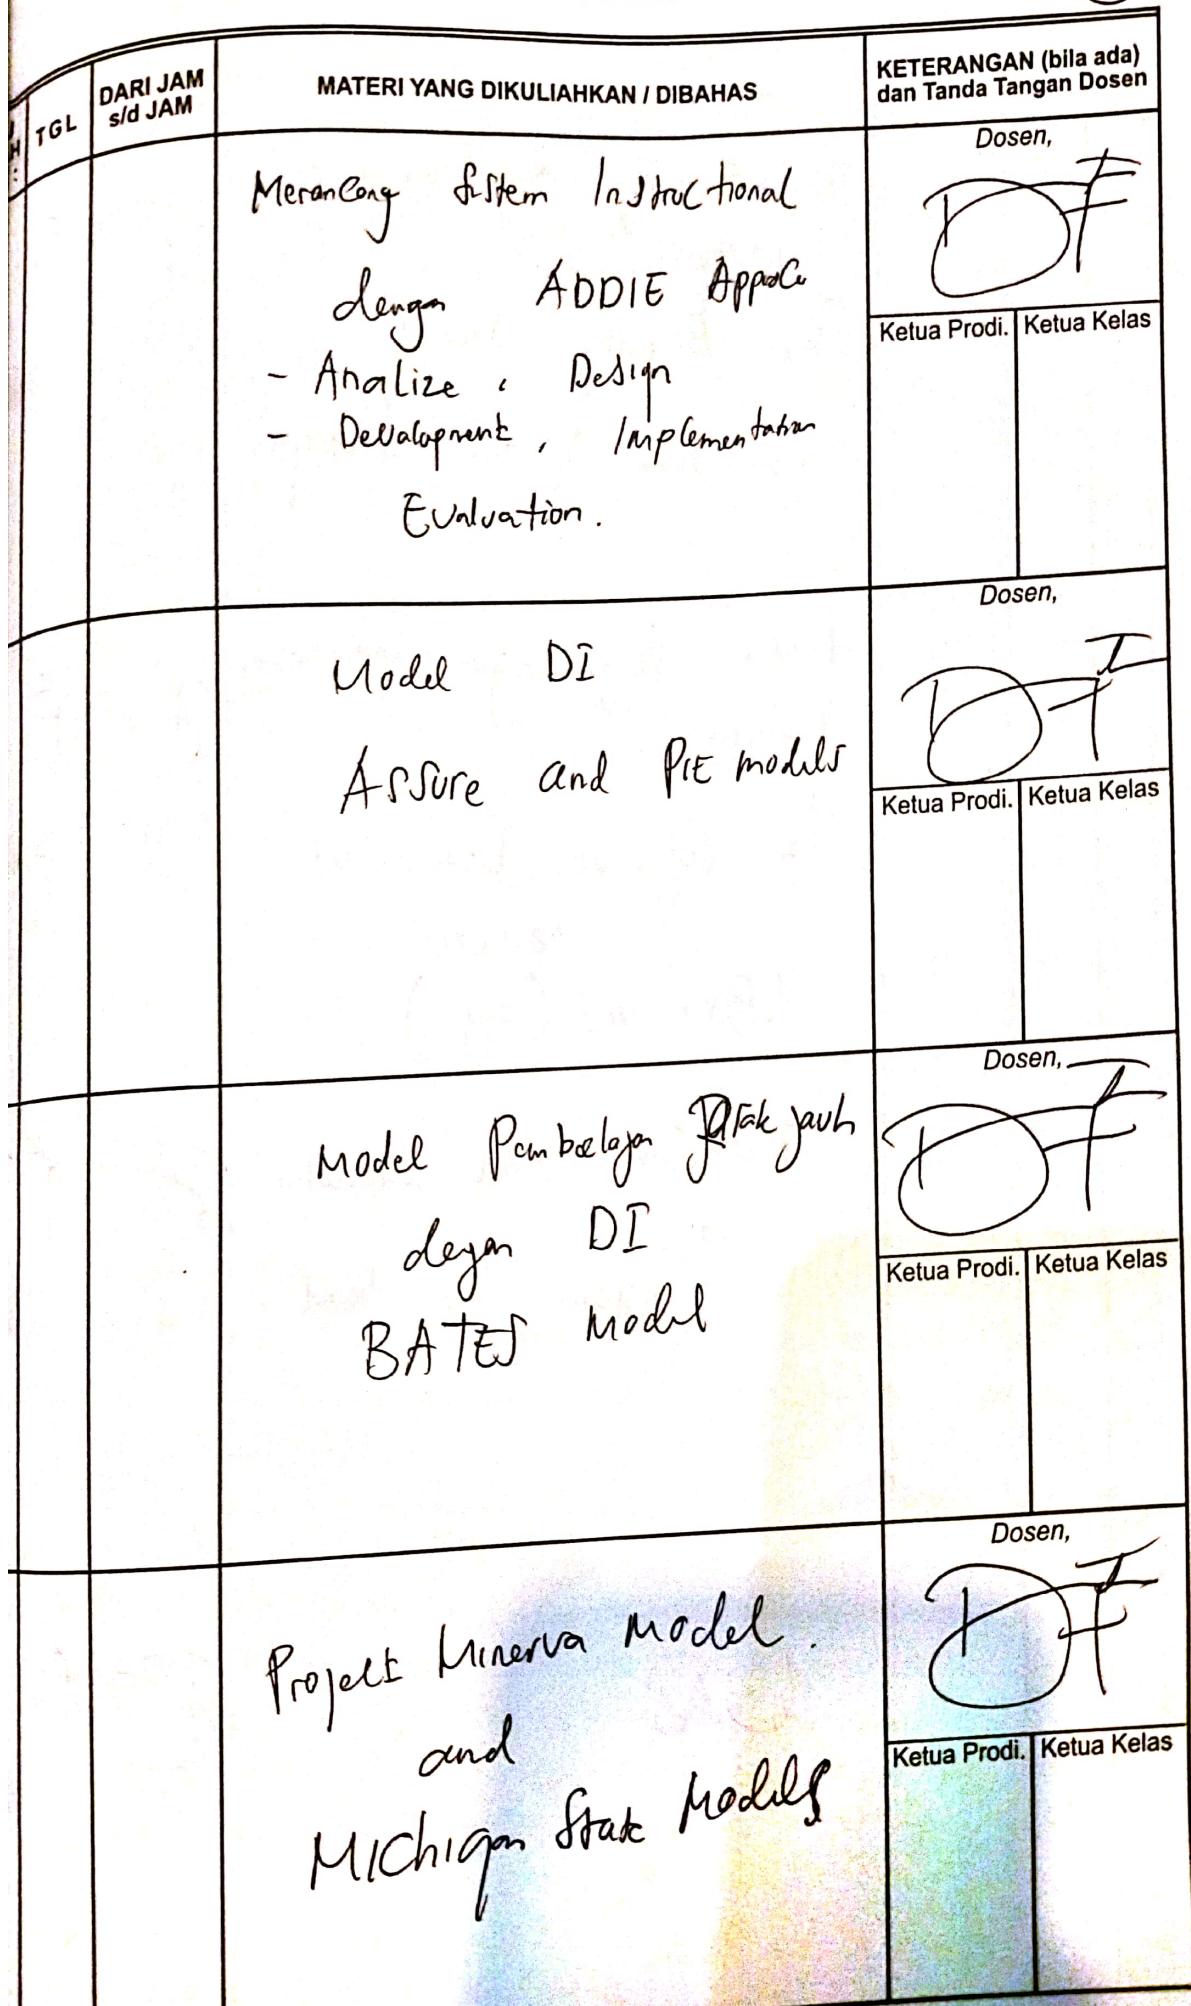 TGL
DARI JAM
s/d JAM
MATERI YANG DIKULIAHKAN / DIBAHAS
KETERANGAN (bila ada)
dan Tanda Tangan Dosen
Merancang Sistem Instructional
dengan ADDIE
- Analize, Design
- Devalopment, Implementation
Evaluation.
Dosen,
Ketua Prodi. Ketua Kelas
Model DI
Assure and PIE models
Dosen,
Ketua Prodi. Ketua Kelas
Model Jarak jauh
dengan DI
BATES Model
Dosen,
Ketua Prodi. Ketua Kelas
Project Minerva Model.
and
Michigan State Models
Dosen,
Ketua Prodi. Ketua Kelas